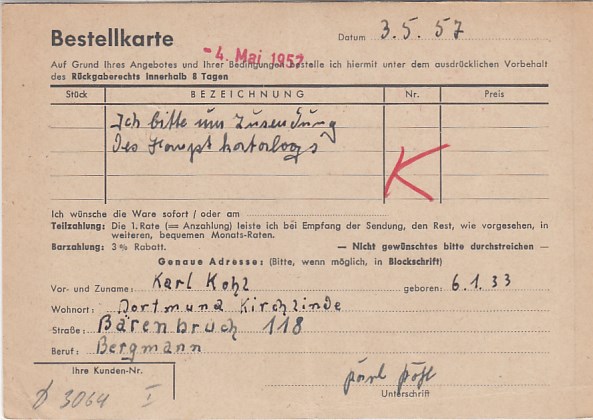 Bestellkarte
Datum 3.5.57
-4. Mai 1957
Auf Grund Ihres Angebotes und Ihrer Bedingungen bestelle ich hiermit unter dem ausdrücklichen Vorbehalt
des Rückgaberechts innerhalb 8 Tagen
Stück BEZEICHNUNG Nr. Preis
Ich bitte um Zusendung
des Hauptkatalogs
K
Ich wünsche die Ware sofort / oder am
Teilzahlung: Die 1. Rate (= Anzahlung) leiste ich bei Empfang der Sendung, den Rest, wie vorgesehen, in
weiteren, bequemen Monats-Raten.
Barzahlung: 3% Rabatt. — Nicht gewünschtes bitte durchstreichen —
Genaue Adresse: (Bitte, wenn möglich, in Blockschrift)
Vor- und Zuname: Karl Kohl geboren: 6.1.33
Wohnort: Dortmund Kirchlinde
Straße: Bärenbruch 118
Beruf: Bergmann
Ihre Kunden-Nr.
3064 I
Karl Kohl
Unterschrift